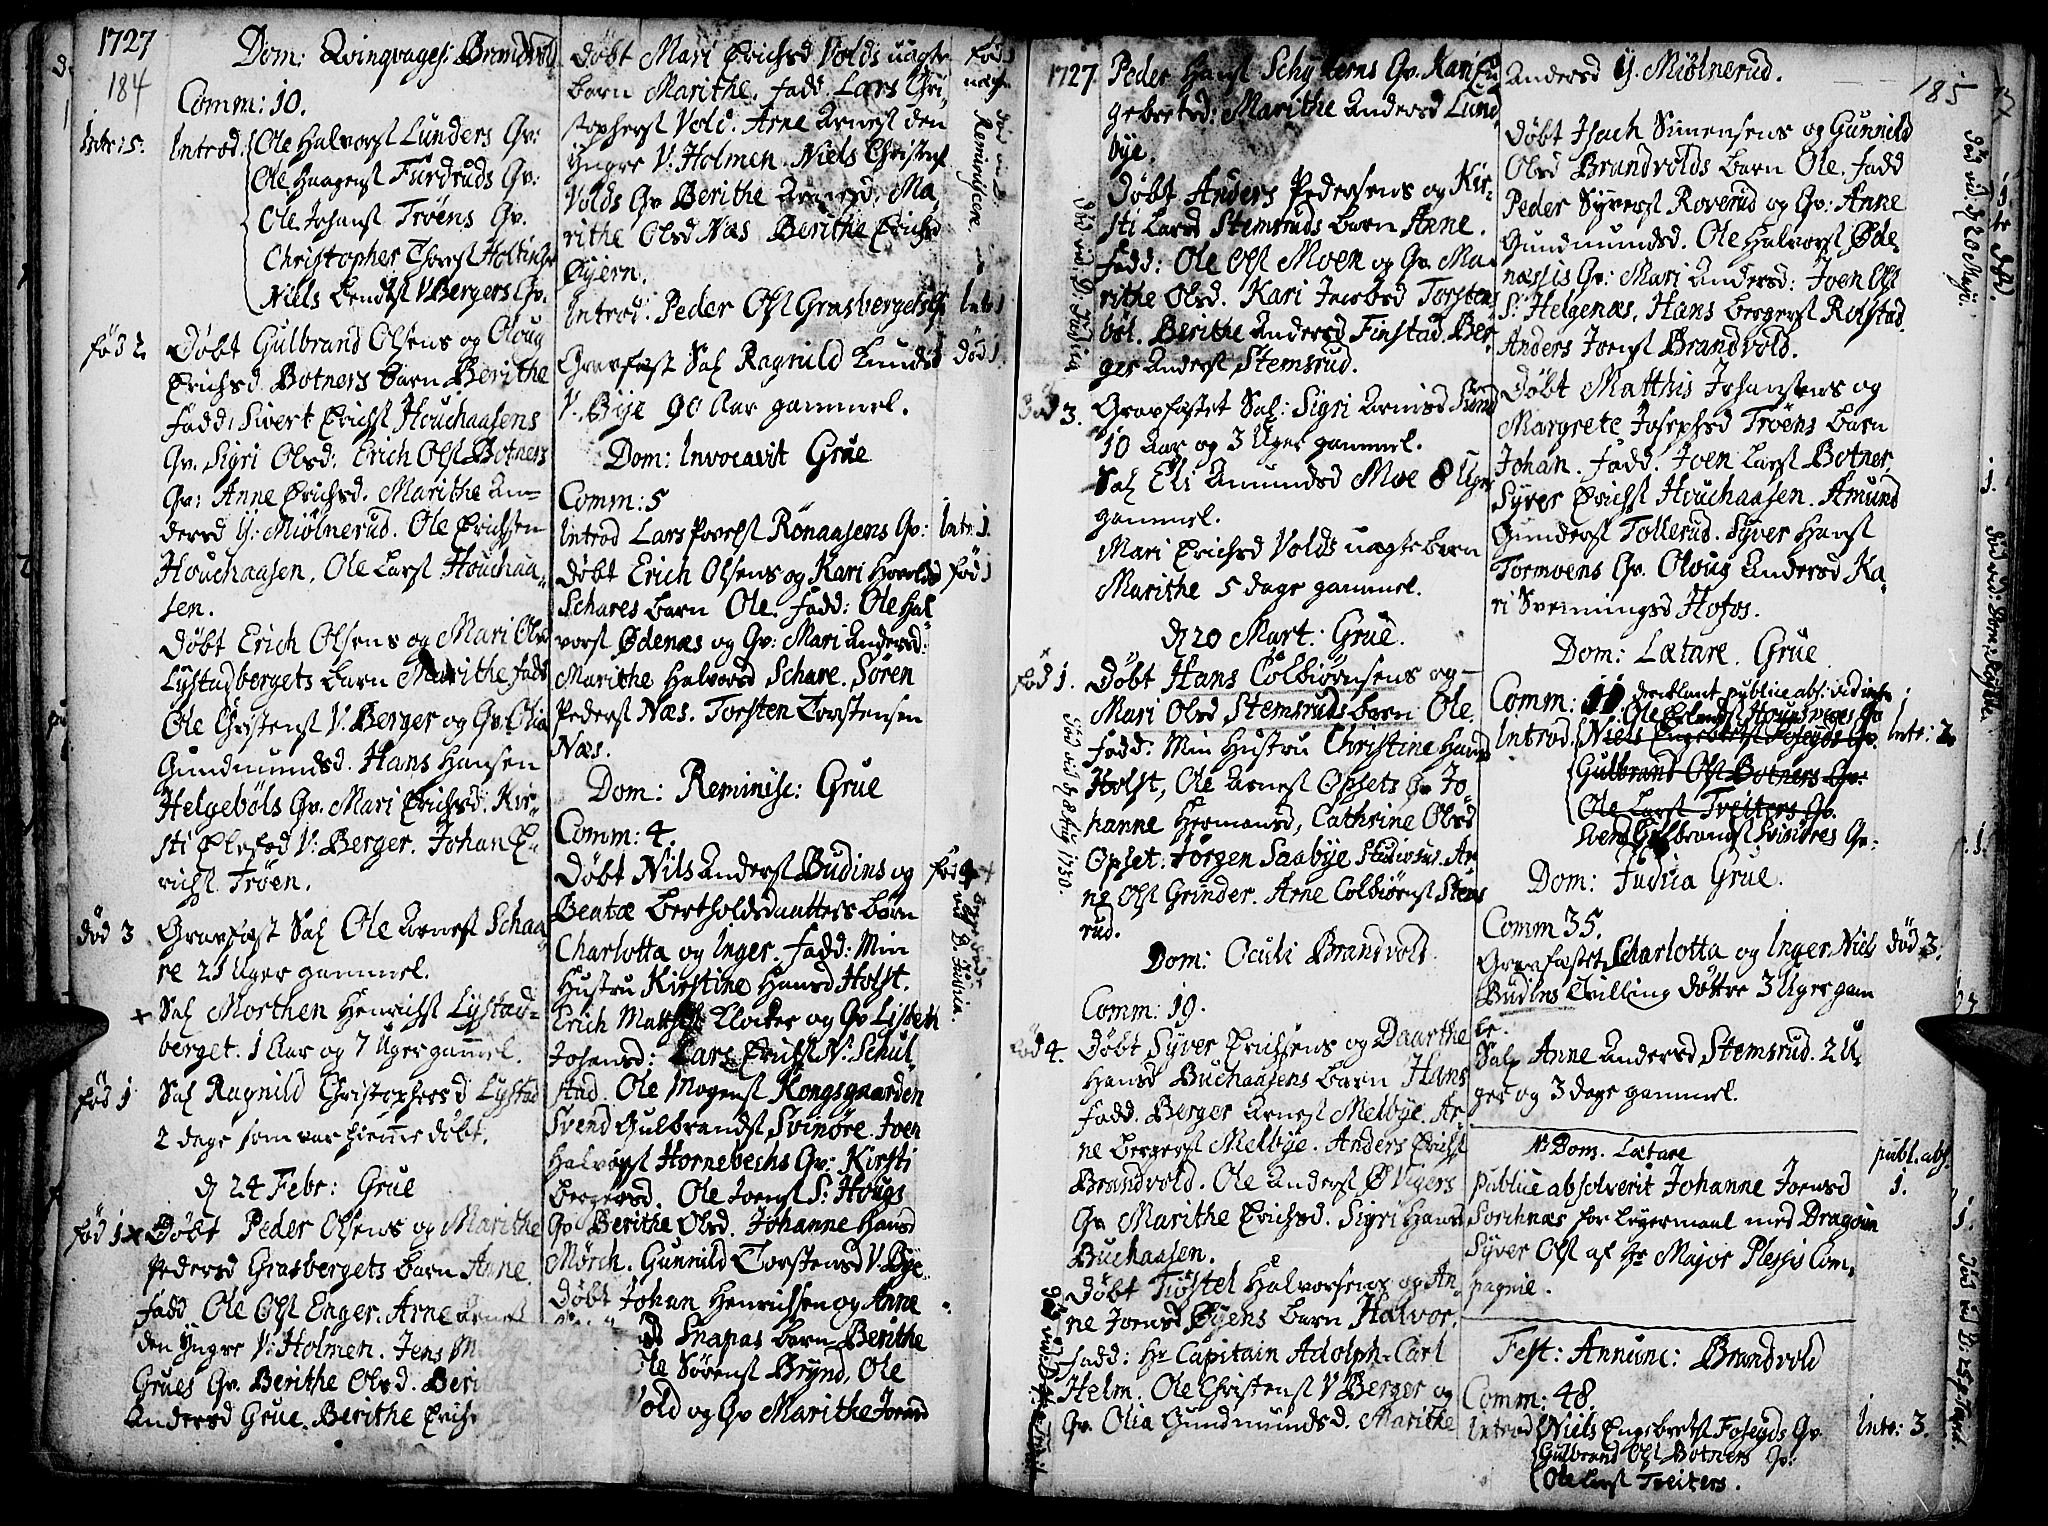 1727
184
Dom: Qvinqvages: Brandvold
Comm: 10.
Intr: 5.
Introd. Ole Halvorsꝭ Lunders Qv:
Ole Haagensꝭ Furdruds Qv:
Ole Johansꝭ Trøens Qv.
Christopher Thorsꝭ Holting Qv
Niels Bendtsꝭ V Bergers Qv.
fød 2.
Døbt Gulbrand Olsens og Oloug
Erichsd. Botners barn Berithe
Fadd: Sivert Erichsꝭ Houchaasens
Qv. Sigri Olsd: Erich Olsꝭ Botners
Qv: Anne Erichsd. Marithe An-
dersd Y: Miølnerud. Ole Erichsen
Houchaasen, Ole Larsꝭ Houchaa-
sen.
Døbt Erich Olsens og Mari Olsd
Lystadbergets barn Marithe Fadd
Ole Christensꝭ V. Berger og Qv. Olia
Gundmundsd. Hans Hansen
Helgebøls Qv. Mari Erichsd. Kir-
sti Olufsd V: Berger. Johan E-
richsꝭ Trøen.
død 3
Gravfæst Sal Ole Arnesꝭ Schaa
re 21 Uger gammel.
+ Sal Morthen Henrichsꝭ Lystad-
berget. 1 Aar og 7 Uger gammel.
fød 1
Sal Ragnild Christophersd Lystad
2 dage som var hiemme døbt.
d 24 Febr: Grue
fød 1 x
Døbt Peder Olsens og Marithe
Pedersd Grasbergets barn Anne.
Fadd Ole Olsꝭ Enger. Arne Arnesꝭ
den Yngre V: Holmen. Jens
Grues Qv. Berithe Olsd.
Andersd Grue. Berithe Erichs
Døbt Mari Erichsd Volds uægte
barn Marithe. Fadd: Lars Chri-
stophersꝭ Vold. Arne Arnesꝭ den
Yngre V: Holmen. Niels Christensꝭ
Volds Qv Berithe Arnesd. Ma-
rithe Olsd Næs Berithe Erichsd
Øyern.
Introd: Peder Olsꝭ Grasbergets Qv
Intr 1
Gravfæst Sal Ragnild Knudsd
død 1.
V. Bye 90 Aar gammel.
Dom: Invocavit Grue
Comm: 5
Introd Lars Povelsꝭ Rønaasens Qv:
Intr: 1.
Døbt Erich Olsens og Kari Hovelsd
fød 1
Schares barn Ole. Fadd: Ole Hal-
vorsꝭ Ødenæs og Qv: Mari Andersd:
Marithe Halvorsd Schare. Søren
Pedersꝭ Næs. Torsten Torstensen
Næs.
Dom: Reminisc: Grue
Comm: 4.
Døbt Nils Andersꝭ Budins og
fød 4
Beatæ Bertholdsdaatters børn
Charlotta og Inger. Fadd: Min
Hustru Kirstine Hansd Holst.
Erich Matthisꝭ Klocker og Qv Lisbeth
Johansd: Lars Erichsꝭ N: Schul-
stad. Ole Mogensꝭ Kongsgaarden
Svend Gulbrandsꝭ Svinøre. Joen
Halvorsꝭ Hornebechs Qv: Kirsti
Bergersd. Ole Joensꝭ S: Hougs
Qv Berithe Olsd. Johanne Hansd
Mørch. Gunnild Torstensd V. Bye.
Døbt Johan Henrichsen og Anne
Snapas barn Berithe
Ole Sørensꝭ Brynd, Ole
Vold og Qv Marithe Joensd
1727
Peder Hansꝭ Schytterns Qv. Kari En
gebretsd: Marithe Andersd Lund
bye.
Døbt Anders Pedersens og Kir-
sti Larsd Stemsruds barn Anne.
Fadd: Ole Olsꝭ Moen og Qv. Ma-
rithe Olsd. Kari Jacobsd Torstens
bøl. Berithe Andersd Finstad. Ber-
ger Andersꝭ Stemsrud.
død 3.
Gravfæstet Sal: Sigri Arnisd Sund
10 Aar og 3 Uger gammel.
Sal Eli Amundsd Moe 8 Uger
gammel.
Mari Erichsd Volds uægte barn
Marithe 5 dage gammel.
d 20 Mart: Grue.
fød 1.
Døbt Hans Colbiørnsens og
Mari Olsd Stemsruds barn Ole.
Fadd: Min Hustru Christine Hansd
Holst, Ole Arnesꝭ Opsets Qv Jo
hanne Hermansd, Cathrine Olsd
Opset. Jørgen Saabye Studiosus. Ar
ne Olsꝭ Grinder. Arne Colbiørnsꝭ Stems
rud.
Død vid d 8 Aug 1750.
Dom: Oculi Brandvold.
Comm: 19.
fød 4.
Døbt Syver Erichsens og Daarthe
Hansd Buchaasens barn Hans
Fadd. Berger Arnesꝭ Melbye. Ar-
ne Bergersꝭ Melbye. Anders Erichsꝭ
Brandvold. Ole Andersꝭ Ø Vigers
Qv Marithe Erichsd. Sigri Hansd
Buchaasen.
Døbt Tiøstel Halvorsens og An-
ne Joensd Øyens barn Halvor.
Fadd: Hr Capitain Adolph Carl
Helm. Ole Christensꝭ V Berger og
Qv. Olia Gundmundsd. Marithe
185
Andersd Y. Miølnerud.
Døbt Isach Simensens og Gunnild
Olsd Brandvolds barn Ole. Fadd
Peder Syversꝭ Roverud og Qv: Anne
Gundmundsd. Ole Halvorsꝭ Øde-
næssis Qv: Mari Andersd: Joen Olsꝭ
S: Helgenæs, Hans Bergersꝭ Rotstad.
Anders Joensꝭ Brandvold.
Døbt Matthis Johansens og
Margrete Josephsd Trøens barn
Johan. Fadd. Joen Larsꝭ Botner,
Syver Erichsꝭ Houchaasen. Amund
Gundersꝭ Tollerud. Syver Hansꝭ
Tormoens Qv. Oloug Andersd Ka-
ri Svenningsd Hofos.
Dom: Lætare. Grue
Comm: 11
Introd. Niels Engebretsꝭ Foseyds Qv.
Intr: 2
Gulbrand Olsꝭ Botners Qv:
Ole Larsꝭ Treiters Qv.
Svend Gulbrandsꝭ Svinøres Qv:
Dom: Judica Grue.
Comm 35.
Gravfæstet Charlotta og Inger Niels
død 3.
Budins Tvilling døttre 3 Uger gam
le.
Sal Anne Andersd Stemsrud. 2 U-
ger og 3 dage gammel.
NB Dom. Lætare
publ. abs.
1.
Publice absolverit Johanne Joensd
Sorchnæs for Leyermaal med Dragoun
Syver Olsꝭ af Hr Major Plessis Com-
pagnie.
Fest: Annunc: Brandvold
Comm: 48.
Introd Niels Engebretsꝭ Foseyds Qv
Intr: 3.
Gulbrand Olsꝭ Botners Qv:
Ole Larsꝭ Treiters.